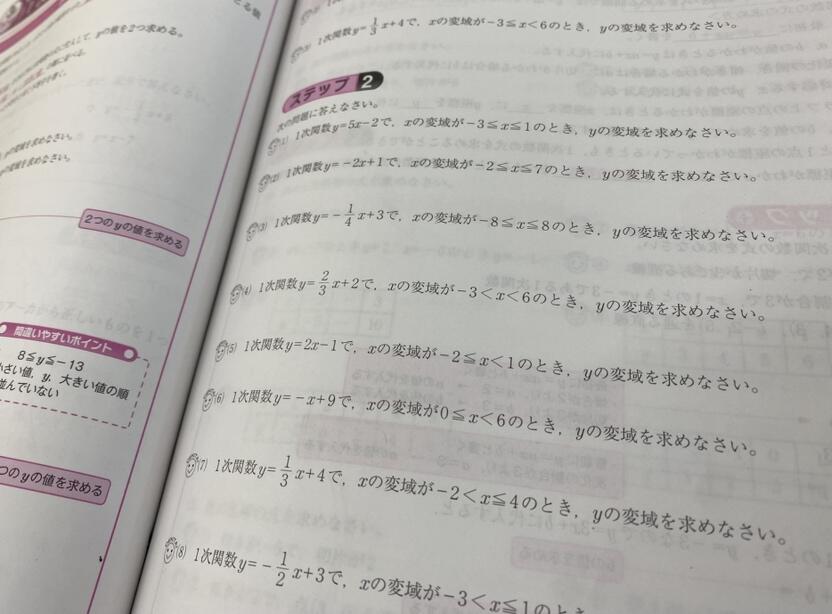 とる値
yの値を2つ求める。
yの変域を求めなさい。
2つのyの値を求める
間違いやすいポイント
8≦y≦−13
小さい値, y, 大きい値の順
並んでいない
つのyの値を求める
1次関数y=1/3x+4で, xの変域が−3≦x<6のとき, yの変域を求めなさい。
ステップ2
次の問題に答えなさい。
(1) 1次関数y=5x−2で, xの変域が−3≦x≦1のとき, yの変域を求めなさい。
(2) 1次関数y=−2x+1で, xの変域が−2≦x≦7のとき, yの変域を求めなさい。
(3) 1次関数y=−1/4x+3で, xの変域が−8≦x≦8のとき, yの変域を求めなさい。
(4) 1次関数y=2/3x+2で, xの変域が−3<x<6のとき, yの変域を求めなさい。
(5) 1次関数y=2x−1で, xの変域が−2≦x<1のとき, yの変域を求めなさい。
(6) 1次関数y=−x+9で, xの変域が0≦x<6のとき, yの変域を求めなさい。
(7) 1次関数y=1/3x+4で, xの変域が−2<x≦4のとき, yの変域を求めなさい。
(8) 1次関数y=−1/2x+3で, xの変域が−3<x≦1のとき